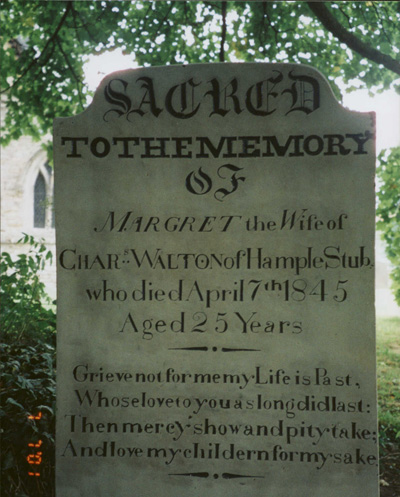 SACRED
TO THE MEMORY
OF
MARGRET the Wife of
CHARs. WALTON of Hample Stub,
who died April 7th 1845
Aged 25 Years
Grieve not for me my Life is Past,
Whose love to you as long did last:
Then mercy show and pity take;
And love my childern for my sake
7 7 '01